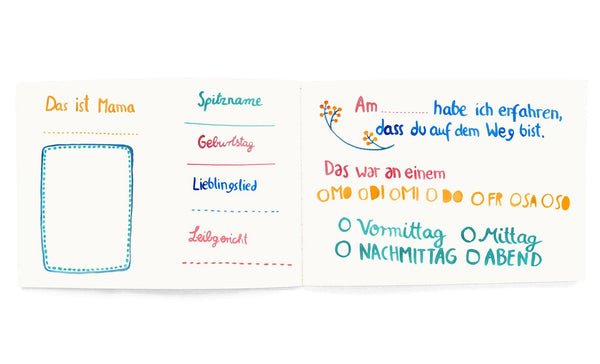 Das ist Mama
Spitzname
Geburtstag
Lieblingslied
Leibgericht
Am .......... habe ich erfahren,
dass du auf dem Weg bist.
Das war an einem
MO DI MI DO FR SA SO
Vormittag Mittag
NACHMITTAG ABEND